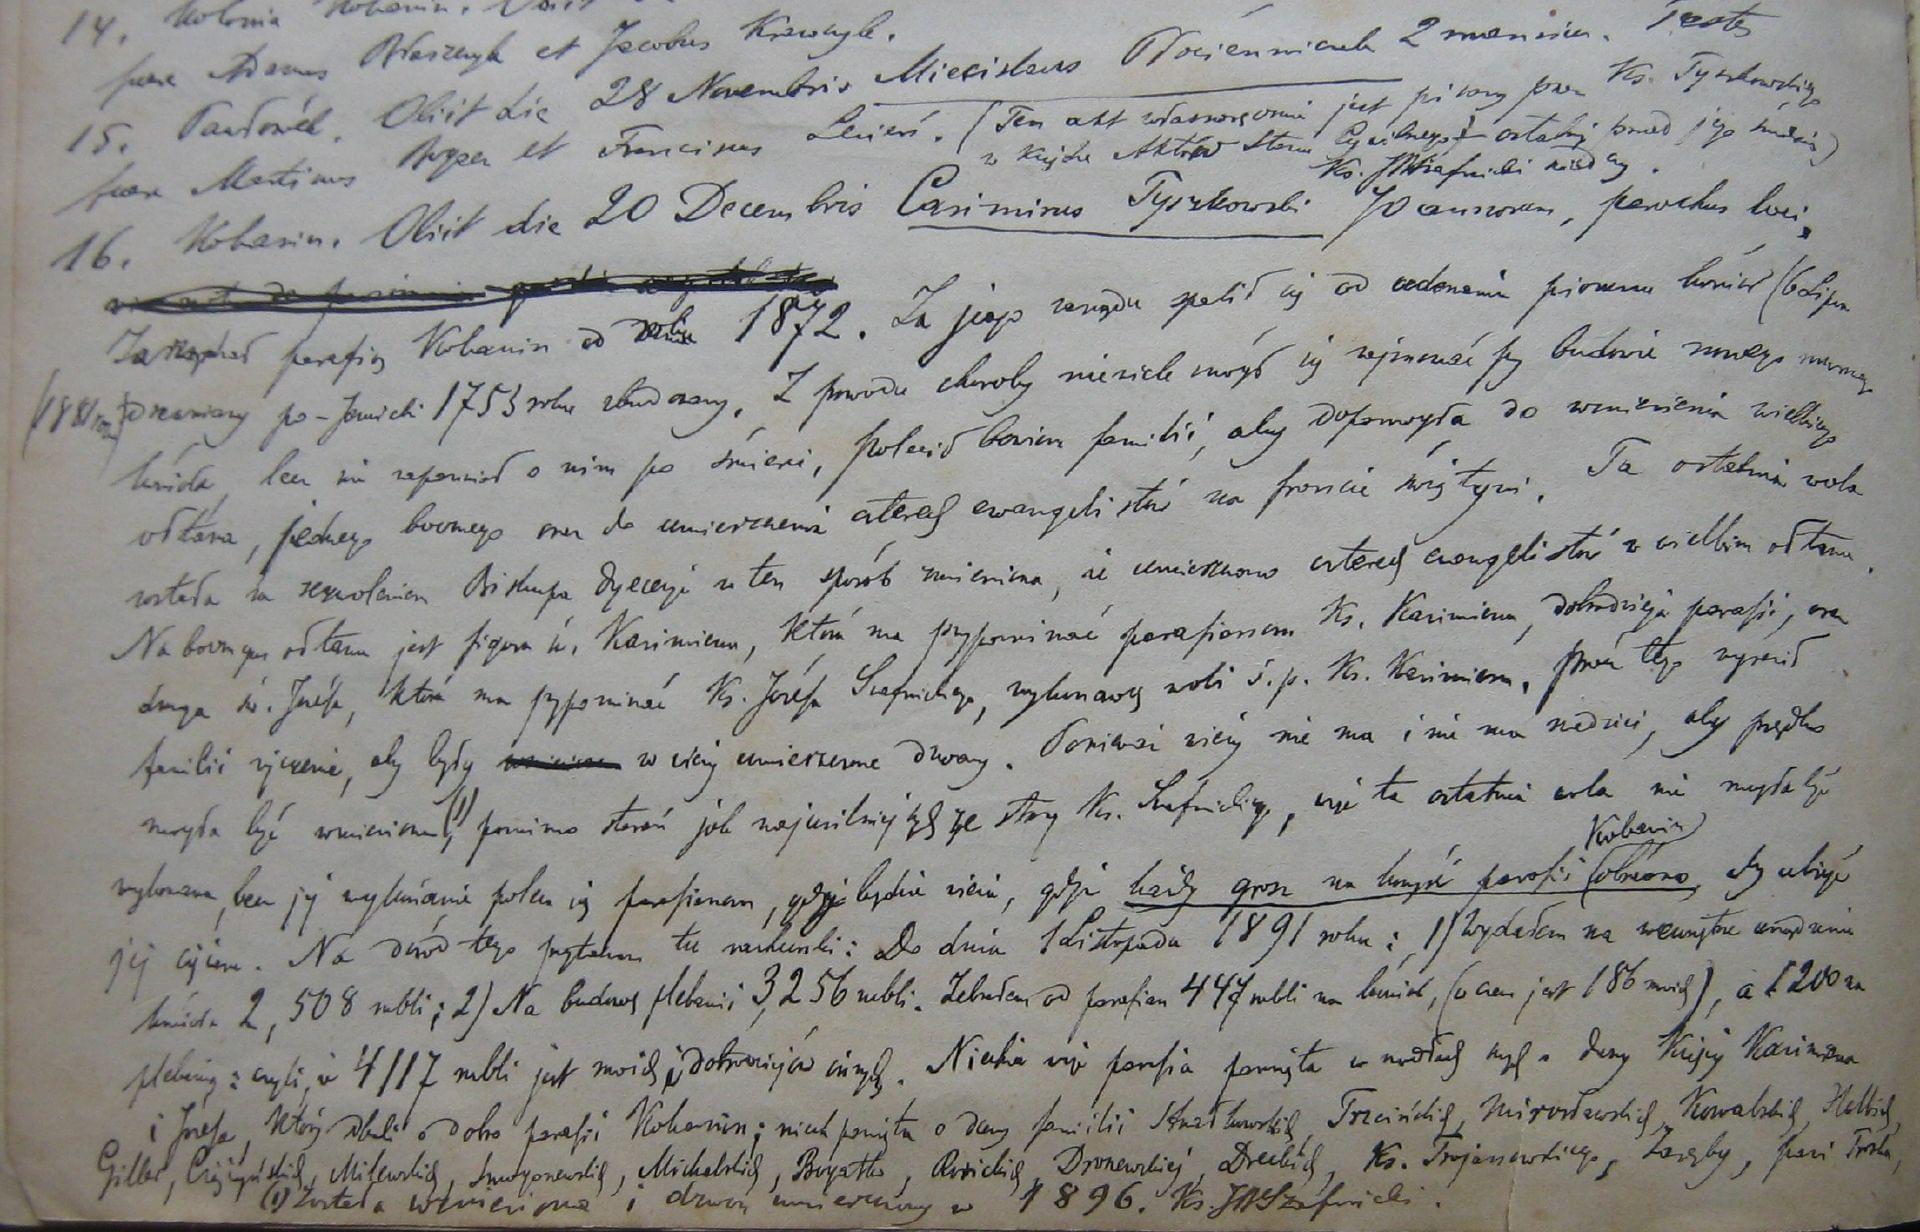 14. Kolonia Kobanin. Obiit
fuere Adamus Błaszczyk et Jacobus Krawczyk.
15. Pawłówek. Obiit die 28 Novembris Miecislaus Włocienniczak 2 mensium. Testes
fuere Martinus et Franciscus (Ten akt własnoręcznie jest pisany przez Ks. Tyszkowskiego
w księdze Aktów Stanu Cywilnego i ostatni przed jego śmiercią)
Ks. JMSzafnicki
16. Kobanin. Obiit die 20 Decembris Casimirus Tyszkowski 70 annorum, parochus loci.
Zarządzał parafią Kobanin od roku 1872. Za jego zarządu spalił się od uderzenia pioruna kościół (6 Lipca
(1881 roku) drewniany po-Jezuicki 1753 roku zbudowany. Z powodu choroby niewiele mógł się zajmować przy budowie nowego murowanego
kościoła, lecz nie zapomniał o nim po śmierci, polecił bowiem familii, aby dopomogła do wzniesienia wielkiego
ołtarza, jednego bocznego oraz do umieszczenia czterech ewangelistów na froncie świątyni. Ta ostatnia wola
została za zezwoleniem Biskupa dyecezji w ten sposób zmieniona, że umieszczono czterech ewangelistów w wielkim ołtarzu.
Na bocznym ołtarzu jest figura św. Kazimierza, która ma przypominać parafianom Ks. Kazimierza, dobrodzieja parafii, oraz
druga św. Józefa, która ma przypominać Ks. Józefa Szafnickiego, wykonawcę woli ś.p. Ks. Kazimierza. Prócz tego wyraził
familii życzenie, aby były w wieży umieszczone dzwony. Ponieważ wieży nie ma i nie ma nadziei, aby prędko
mogła być wzniesiona (1), pomimo starań jak najusilniejszych ze strony Ks. Szafnickiego, więc ta ostatnia wola nie mogła być
wykonana, lecz jej wykonanie poleca się parafianom, gdyż będzie wieża, gdyż każdy grosz na korzyść parafii Kobanin obrócono, aby ulżyć
jej ciężaru. Na dowód tego przytaczam tu rachunki: Do dnia 1 Listopada 1891 roku: 1) Wydałem na wewnętrzne urządzenie
kościoła 2,508 rubli; 2) Na budowę plebanii 3,256 rubli. Zebrałem od parafian 447 rubli na kościół, (w czem jest 186 moich), a 1200 na
plebanię: czyli, że 4117 rubli jest moich i dobrodziejów innych. Niechże więc parafia pamięta w modłach swych o duszy Księży Kazimierza
i Józefa, którzy dbali o dobro parafii Kobanin; niech pamięta o duszy familii Trzcińskich, Mirosławskich, Kowalskich,
Giller, Miłewskich, Michalskich, Bogatko, Rosickich, Dronewskiej, Ks. Trojanowskiego, Zaręby, pani
(1) Została wzniesiona i dzwon umieszczony w 1896. Ks. JMSzafnicki.